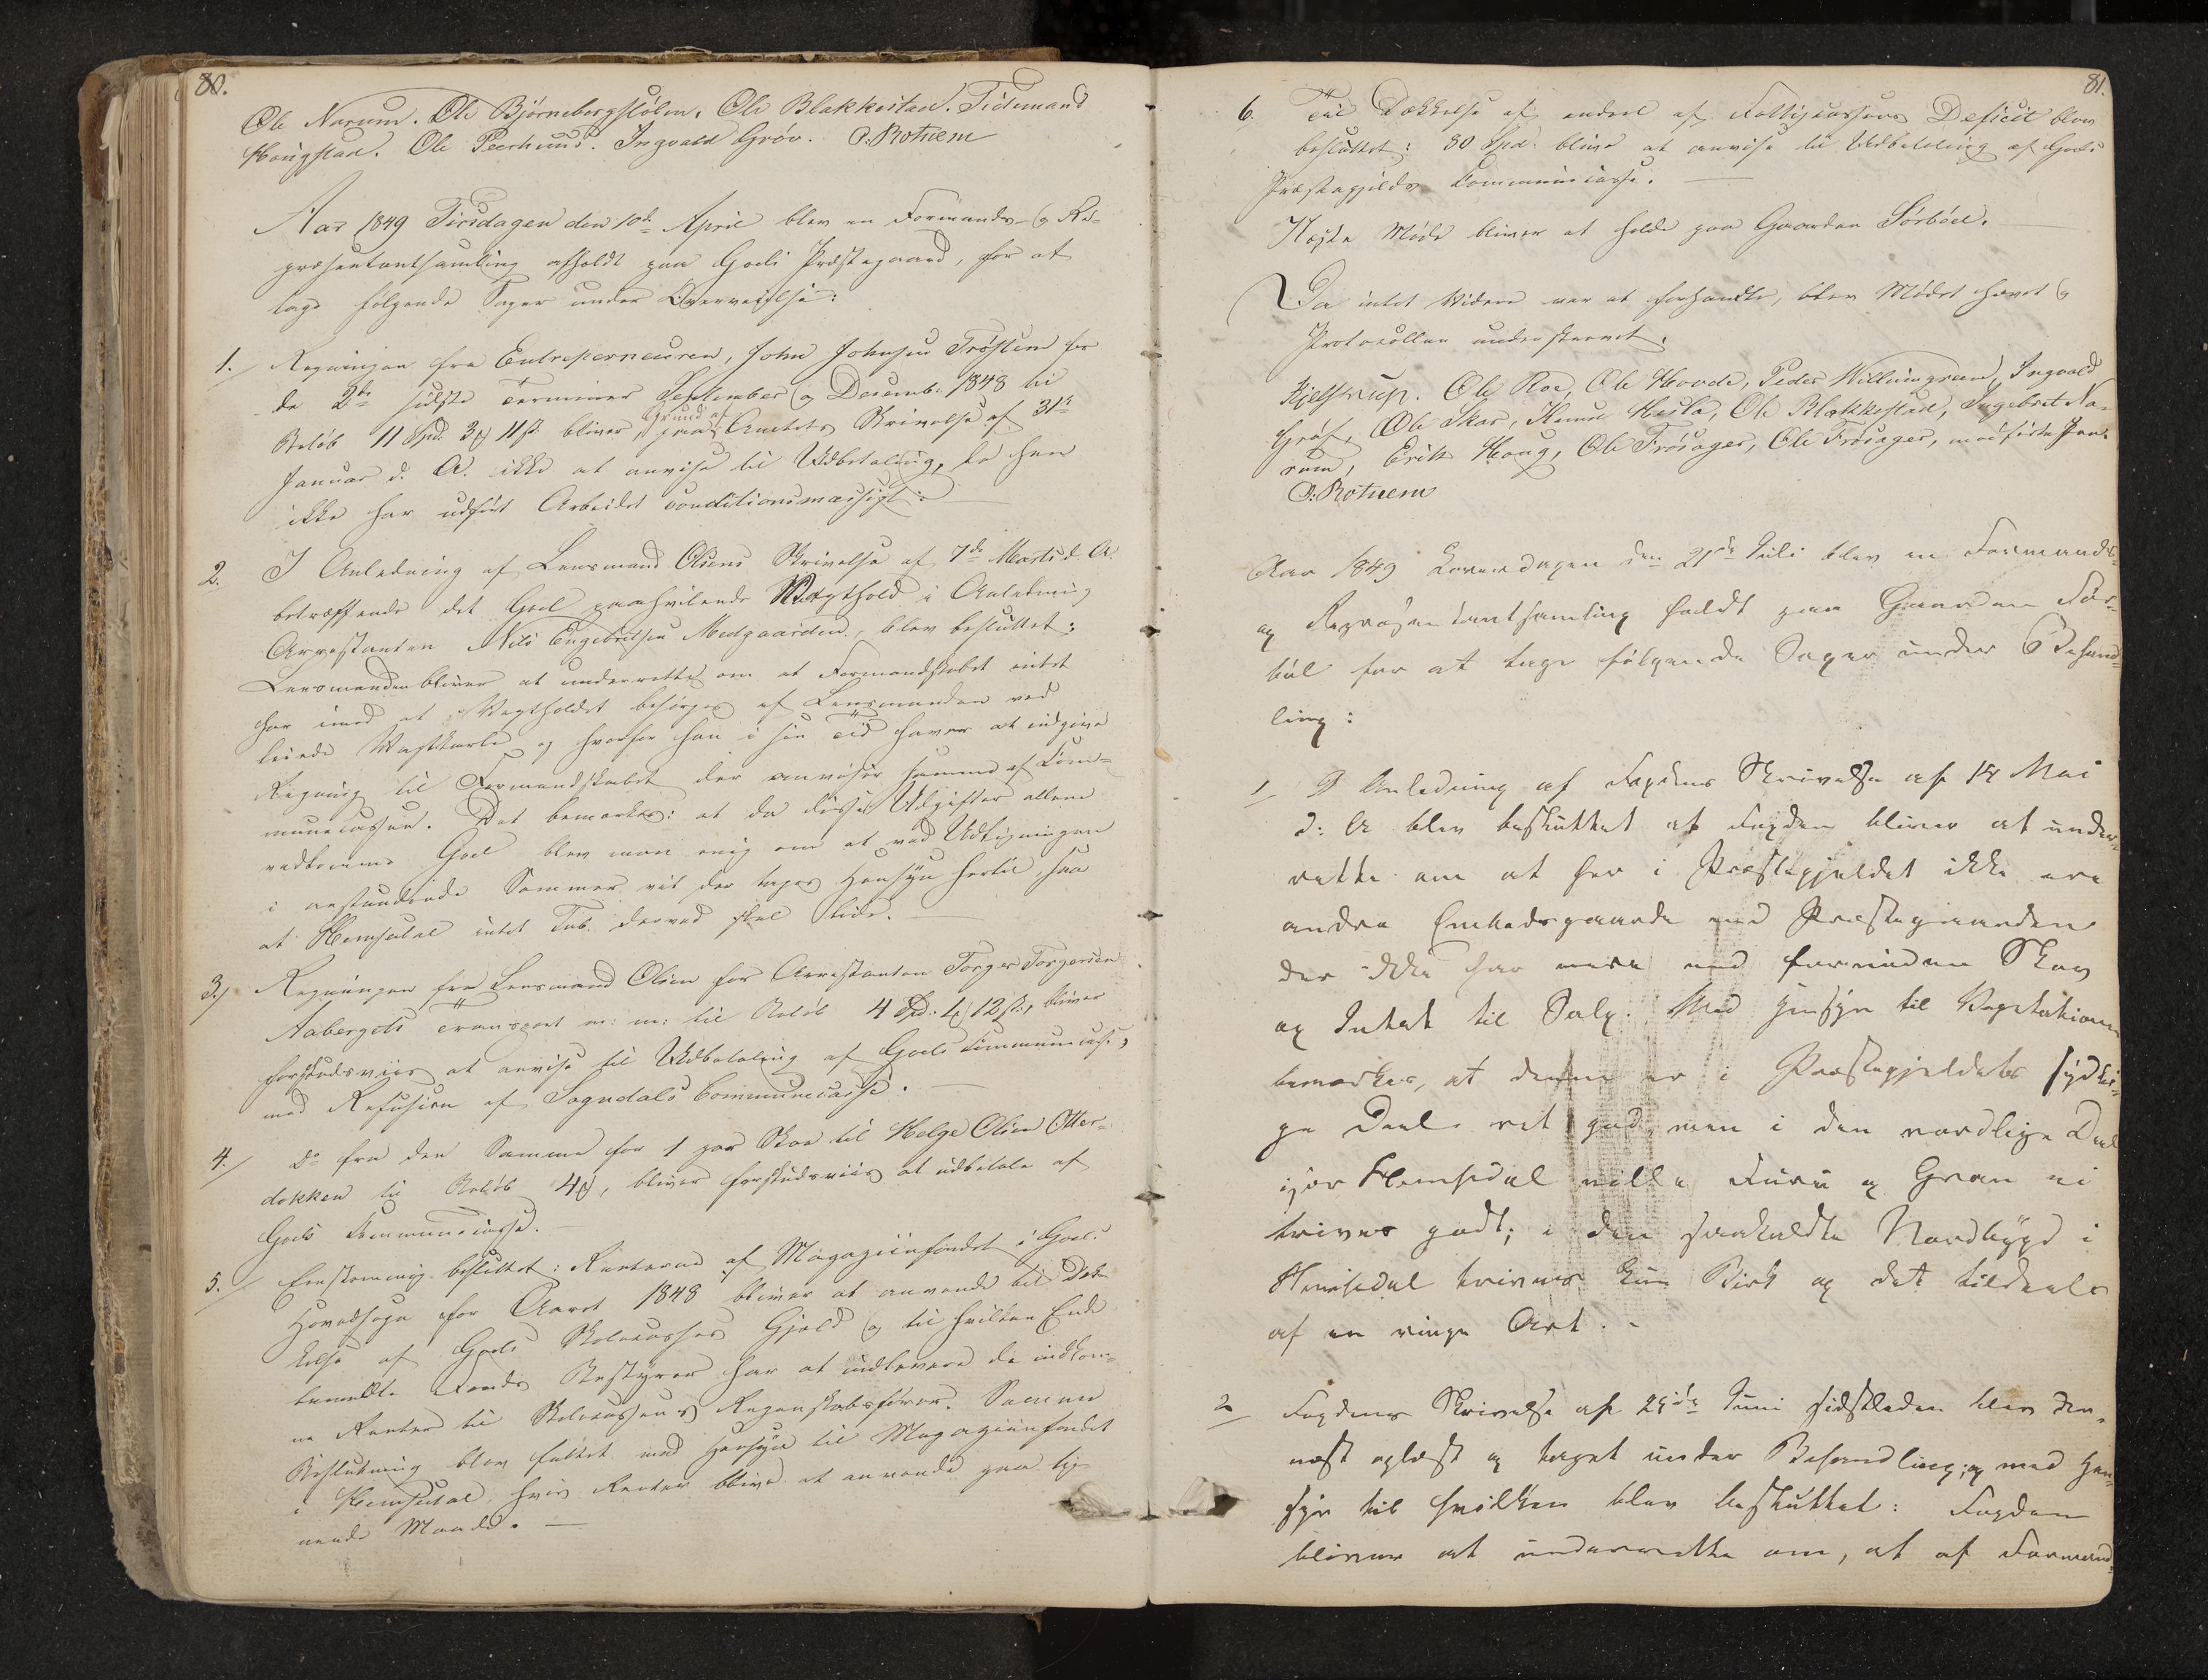 80.
Ole Narum. Ole Bjørnebergstølen, Ole Blakkestad. Tidemand
Hougstad. Ole Peerhuus. Ingvald Grøv. O: Rotnem
Aar 1849 Tirsdagen den 10de April blev en Formands- og Re-
præsentantsamling afholdt paa Gols Præstegaard, for at
tage følgende Sager under Overveielse:
1. Regningen fra Entreperneuren, John Johnsen Trøstem for
de 2de sidste Terminer September og Decemb: 1848 til
Beløb 11 Spd. 3 11 s. bliver paa Grund af Amtets Skrivelse af 31te
Januar d. A. ikke at anvise til Udbetaling, da han
ikke har udført Arbeidet conditionsmæssigt.
2. I Anledning af Lensmand Olsens Skrivelse af 7de Marts d. A.
betræffende det Gol paahvilende Vagthold i Anledning
Arrestanten Nils Engebretsen Medgaarden, blev besluttet:
Lensmanden bliver at underrette om at Formandskabet intet
har imod at Vagtholdet besørges af Lensmanden ved
leiede Vagtkarle og hvorfor han i sin Tid haver at indgive
Regning til Formandskabet der anviser samme af Com-
munecassen. Det bemærkes: at da disse Udgifter allene
vedkomme Gol blev man enig om at ved Udligningen
i anstundende Sommer vil der tages Hensyn hertil saa
at Hemsedal intet Tab derved skal lide.
3. Regningen fra Lensmand Olsen for Arrestanten Torger Torgersen
Aabergets Transport m: m: til Beløb 4 Spd. 12 s., bliver
forskudsviis at anvise til Udbetaling af Gols Communecasse,
mod Refusion af Sogndals Communecasse.
4. Do fra den Samme for 1 par Skoe til Helge Olsen Otter-
dokken til Beløb 4, bliver forskudsviis at udbetale af
Gols Communecasse.
5. Eenstemmig besluttet: Renterne af Magaziinfondet i Gols
Hovedsogn for Aaret 1848 bliver at anvende til Dæk-
kelse af Gols Skolecasses Gjeld og til hvilken Ende
bemeldte Fonds Bestyrer har at udlevere de indkom-
ne Renter til Skolecassens Regnskabsfører. Samme
Beslutning blev fattet med Hensyn til Magaziinfondet
i Hemsedal hvis Renter blive at anvende paa lig-
nende Maade.
81.
6. Til Dækkelse af endeel af Fattigcassens Deficit blev
besluttet: 30 Spd. blive at anvise til Udbetaling af Gols
Præstegjelds Communecasse.
Næste Møde bliver at holde paa Gaarden Sørbøel.
Da intet Videre var at forhandle, blev Mødet hævet og
Protocollen underskrevet.
Kjelstrup. Ole Roe, Ole Hovde, Peder Villumgreen, Ingvald
Grøf, Ole Skar, Knud Kusla, Ole Blakkestad, Ingebret Na-
rum, Erik Houg, Ole Trøsager, Ole Trøsager, med førte Pen.
O: Rotnem
Aar 1849 Løverdagen den 21de Juli blev en Formands-
og Repræsentantsamling holdt paa Gaarden Sør-
bøl for at tage følgende Sager under Behand-
ling:
1. I Anledning af Fogdens Skrivelse af 14 Mai
d: A blev besluttet at Fogden bliver at under-
rette om at her i Præstegjeldet ikke ere
andre Embedsgaarde end Præstegaarden
der ikke har mere end fornøden Skov
og Intet til Salg. Med Hensyn til Vegetationen
bemærkes, at denne er i Præstegjeldets sydli-
ge Deel ret god, men i den nordlige Deel
især Hemsedal ville Furu og Gran ei
trives godt; i den saakaldte Nordbygd i
Hemsedal trives kun Birk og det tildeels
af en ringe Art. -
2 Fogdens Skrivelse af 29de Juni sidstleden blev der-
næst oplæst og taget under Behandling, og med Hen-
syn til hvilken blev besluttet: Fogden
bliver at underrette om, at af Formand-